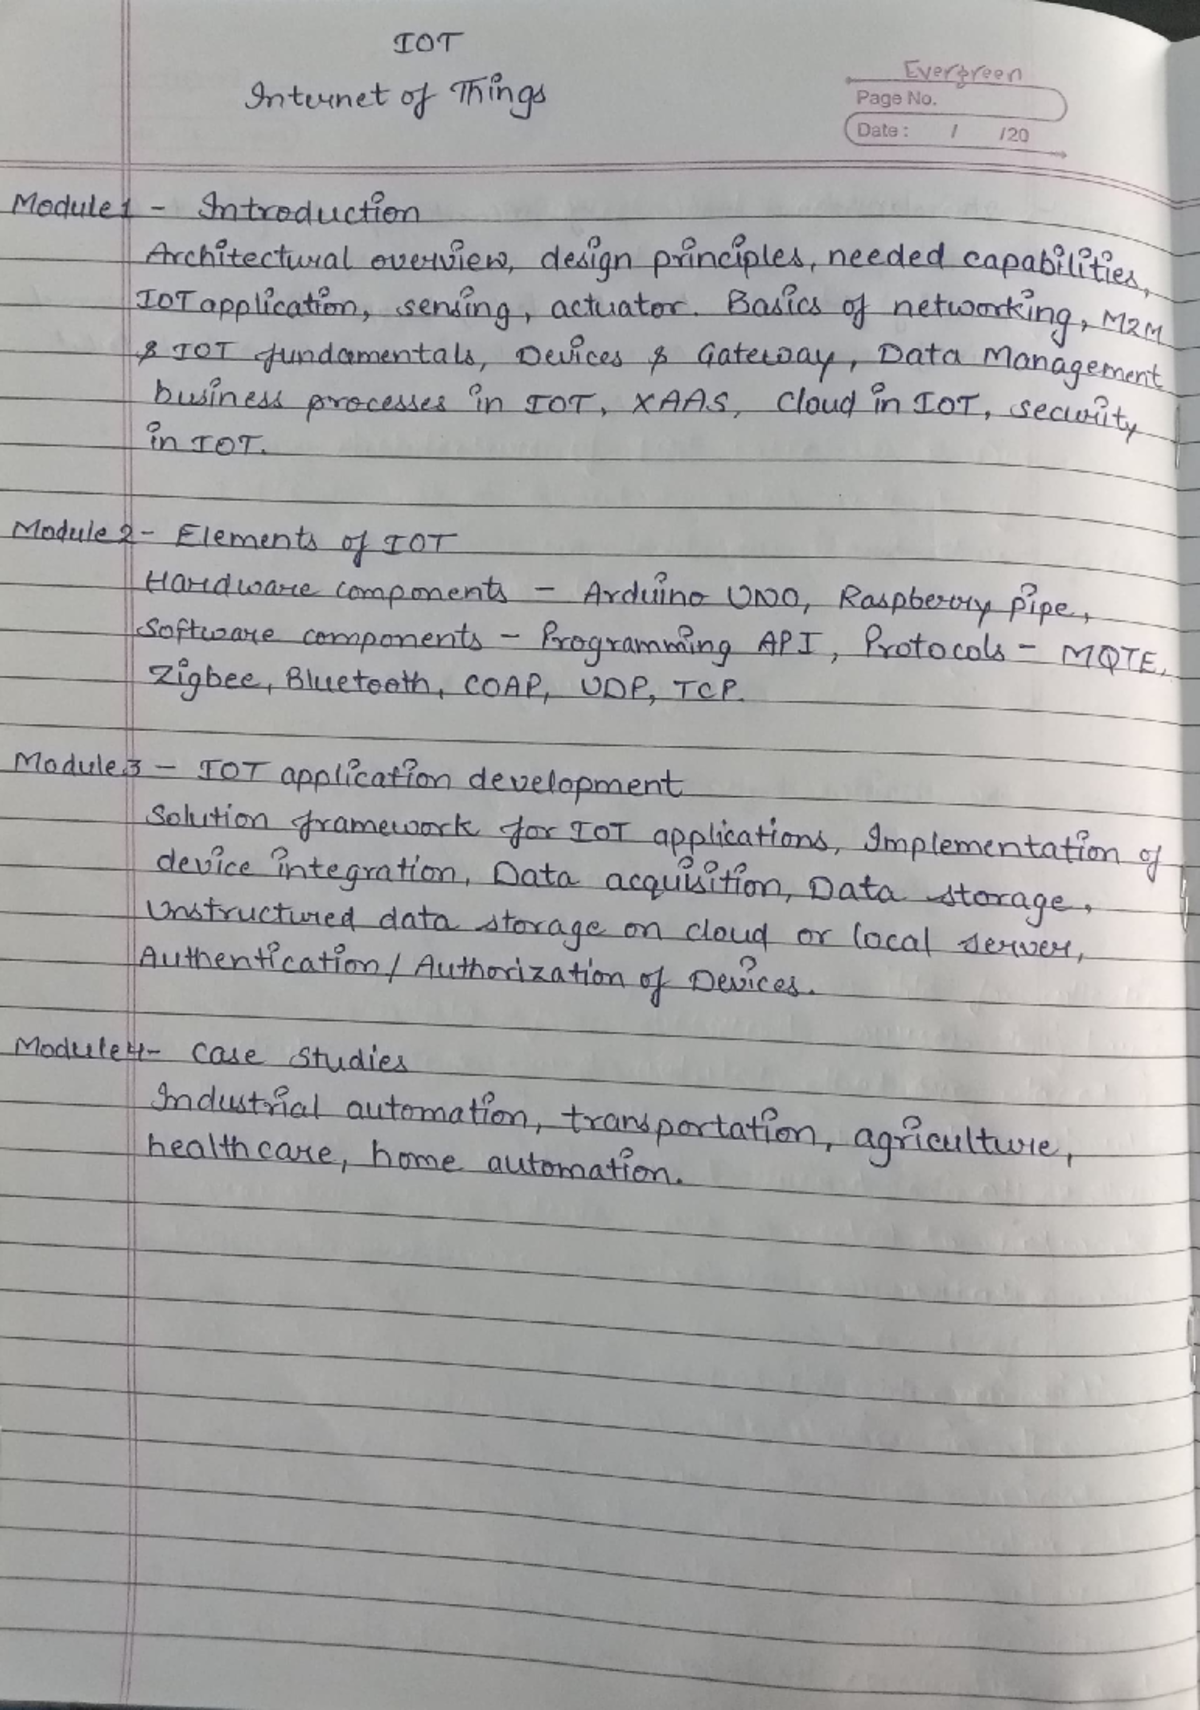 IOT
Internet of Things
Evergreen
Page No.
Date : / /20
Module 1 - Introduction
Architectural overview, design principles, needed capabilities,
IOT application, sensing, actuator. Basics of networking, M2M
& IOT fundamentals, Devices & Gateway, Data Management
business processes in IOT, XAAS, Cloud in IOT, security
in IOT.
Module 2 - Elements of IOT
Hardware components - Arduino UNO, Raspberry pipe,
Software components - Programming API, Protocols - MQTE,
Zigbee, Bluetooth, COAP, UDP, TCP.
Module 3 - IOT application development
Solution framework for IOT applications, Implementation of
device integration, Data acquisition, Data storage,
Unstructured data storage on cloud or local server,
Authentication / Authorization of Devices.
Module 4 - Case Studies
Industrial automation, transportation, agriculture,
healthcare, home automation.